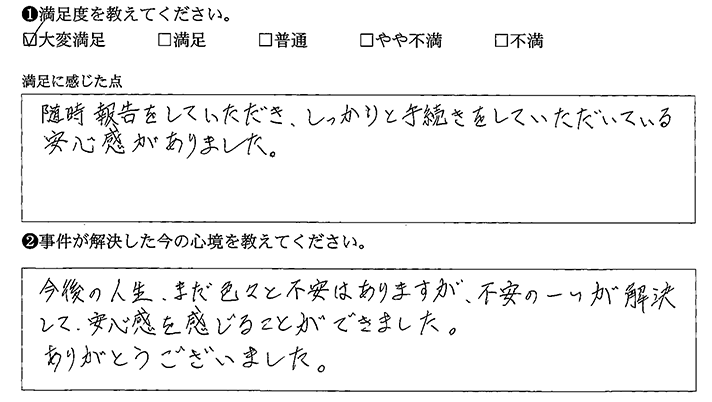 ❶満足度を教えてください。
☑大変満足 □満足 □普通 □やや不満 □不満
満足に感じた点
随時報告をしていただき、しっかりと手続きをしていただいている
安心感がありました。
❷事件が解決した今の心境を教えてください。
今後の人生、まだ色々と不安はありますが、不安の一つが解決
して、安心感を感じることができました。
ありがとうございました。